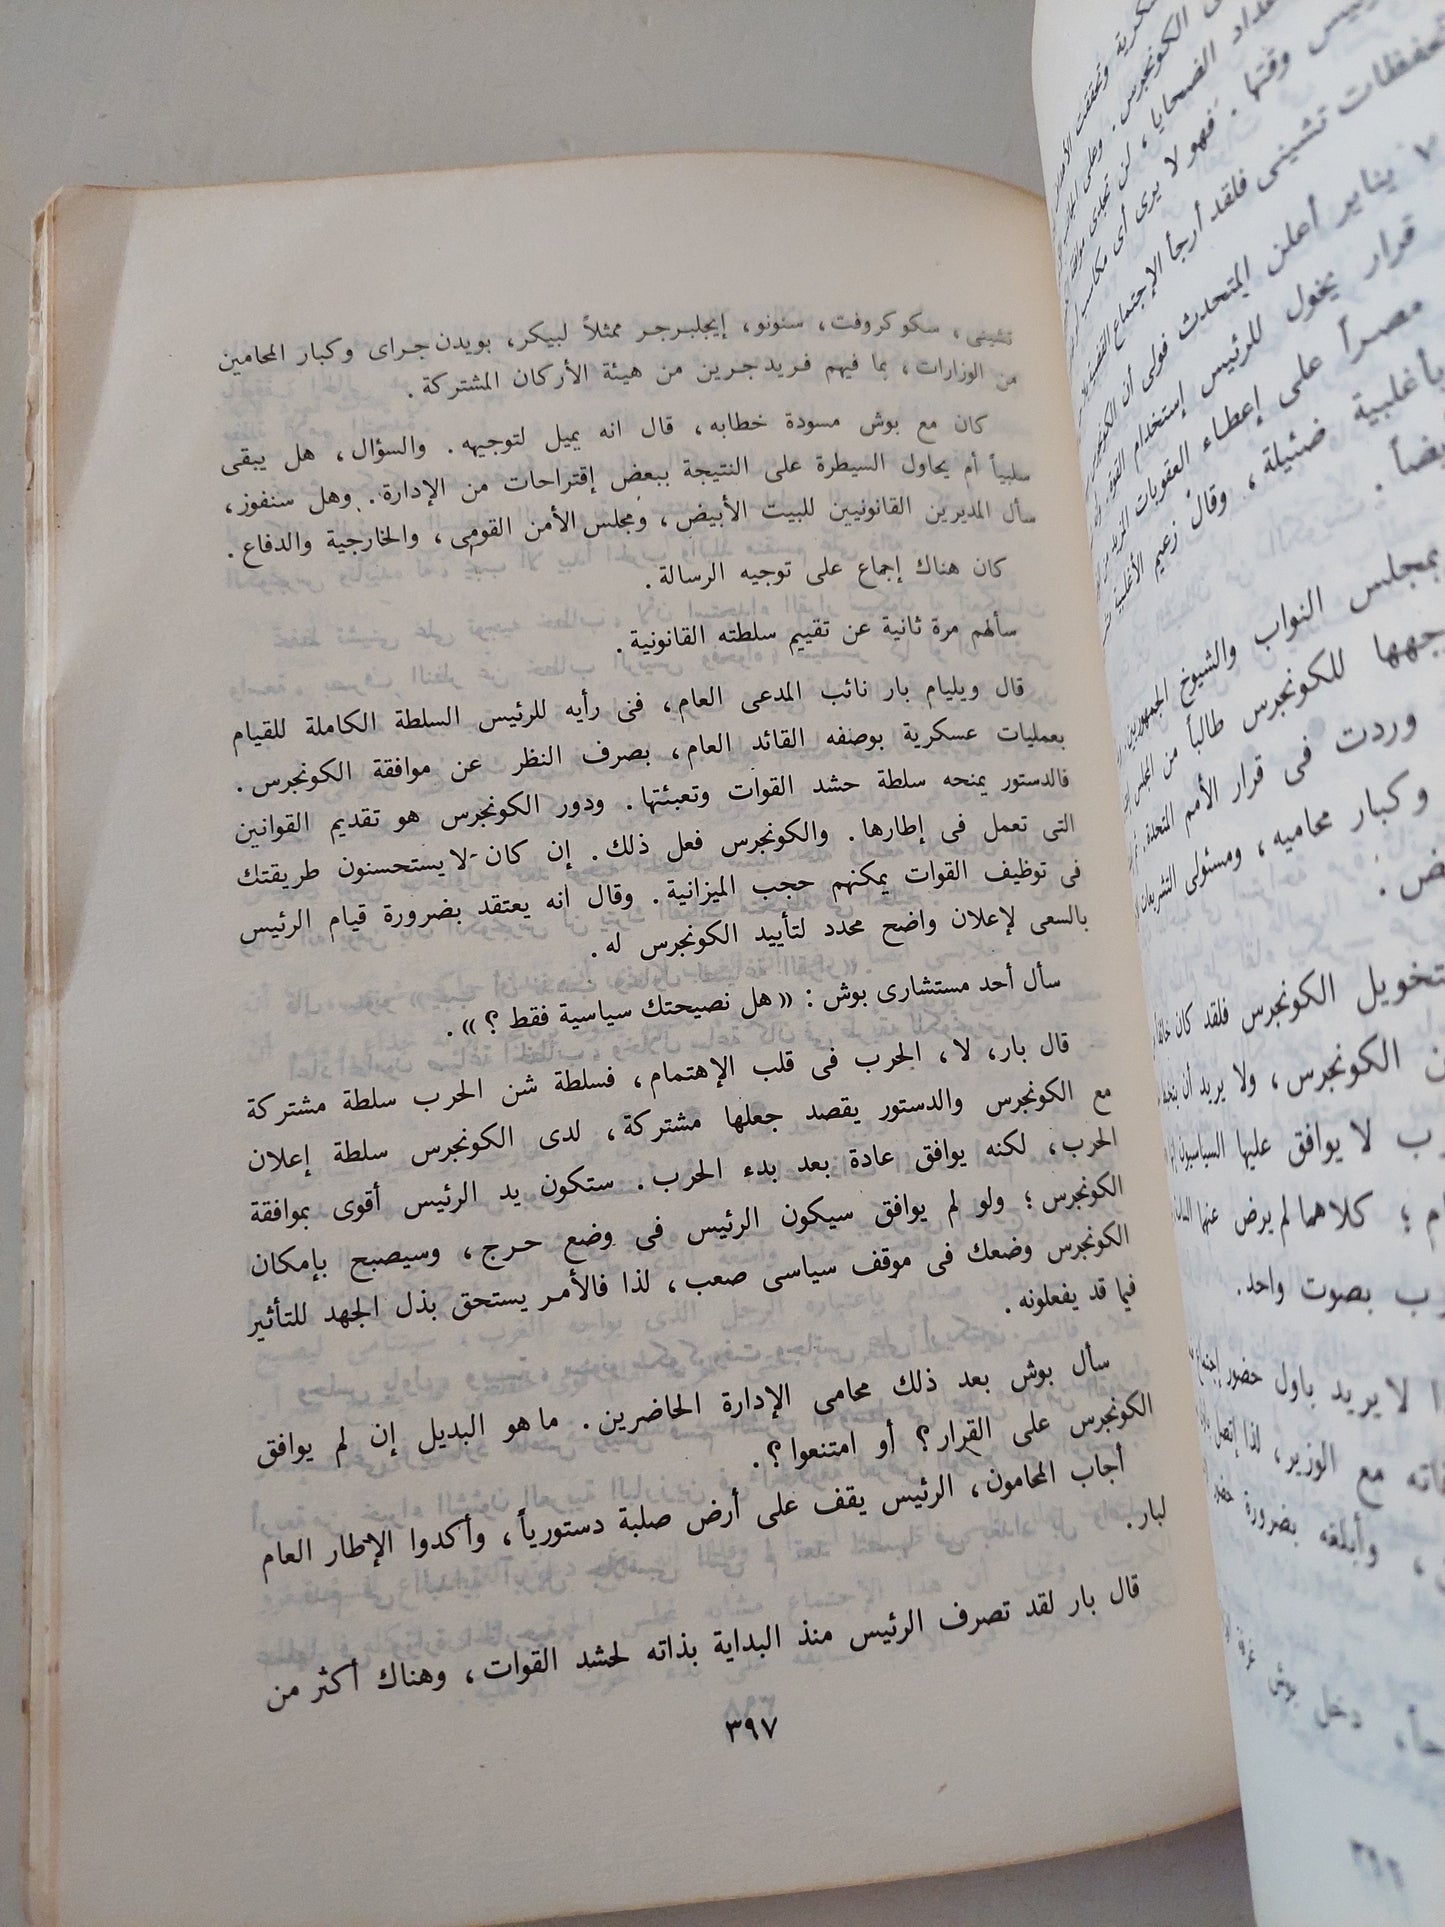 تشينى، سكوكروفت، سنونو، إيجلبرجر ممثلاً لبيكر، بويدن جراى وكبار المحامين
من الوزارات، بما فيهم فريدجرين من هيئة الأركان المشتركة.
كان مع بوش مسودة خطابه، قال انه يميل لتوجيهه. والسؤال، هل يبقى
سلبياً أم يحاول السيطرة على النتيجة ببعض إقتراحات من الإدارة. وهل سنفوز،
سأل المديرين القانونيين للبيت الأبيض، ومجلس الأمن القومى، والخارجية والدفاع.
كان هناك إجماع على توجيه الرسالة.
سألهم مرة ثانية عن تقييم سلطته القانونية.
قال ويليام بار نائب المدعى العام، فى رأيه للرئيس السلطة الكاملة للقيام
بعمليات عسكرية بوصفه القائد العام، بصرف النظر عن موافقة الكونجرس.
فالدستور يمنحه سلطة حشد القوات وتعبئتها. ودور الكونجرس هو تقديم القوانين
التى تعمل فى إطارها. والكونجرس فعل ذلك. إن كان لا يستحسنون طريقتك
فى توظيف القوات يمكنهم حجب الميزانية. وقال انه يعتقد بضرورة قيام الرئيس
بالسعى لإعلان واضح محدد لتأييد الكونجرس له.
سأل أحد مستشارى بوش : « هل نصيحتك سياسية فقط ؟ ».
قال بار، لا، الحرب فى قلب الإهتمام، فسلطة شن الحرب سلطة مشتركة
مع الكونجرس والدستور يقصد جعلها مشتركة، لدى الكونجرس سلطة إعلان
الحرب، لكنه يوافق عادة بعد بدء الحرب. ستكون يد الرئيس أقوى بموافقة
الكونجرس؛ ولو لم يوافق سيكون الرئيس فى وضع حرج، وسيصبح بإمكان
الكونجرس وضعك فى موقف سياسى صعب، لذا فالأمر يستحق بذل الجهد للتأثير
فيما قد يفعلونه.
سأل بوش بعد ذلك محامى الإدارة الحاضرين. ما هو البديل إن لم يوافق
الكونجرس على القرار؟ أو امتنعوا؟.
أجاب المحامون، الرئيس يقف على أرض صلبة دستورياً، وأكدوا الإطار العام
لبار.
قال بار لقد تصرف الرئيس منذ البداية بذاته لحشد القوات، وهناك أكثر من
٣٩٧
الكونجرس. وعلى
عداد الضحايا، لن تجدى
وقتها. فهو لا يرى أى مكاسب
تشينى فلقد أرجأ الإجتماع
يناير أعلن المتحدث فولى أن
قرار يخول للرئيس إستخدام القوة
مصراً على إعطاء العقوبات
بأغلبية ضئيلة، وقال زعيم الأغلبية
بمجلس النواب والشيوخ الجمهوريين
للكونجرس طالباً من المجلس
وردت فى قرار الأمم المتحدة.
وكبار محاميه، ومسئولى التشريعات
تخويل الكونجرس فلقد كان
الكونجرس، ولا يريد أن
لا يوافق عليها السياسيون
كلاهما لم يرض عنها
بصوت واحد.
لا يريد باول حضور
مع الوزير، لذا إتصل
وأبلغه بضرورة
دخل بوش